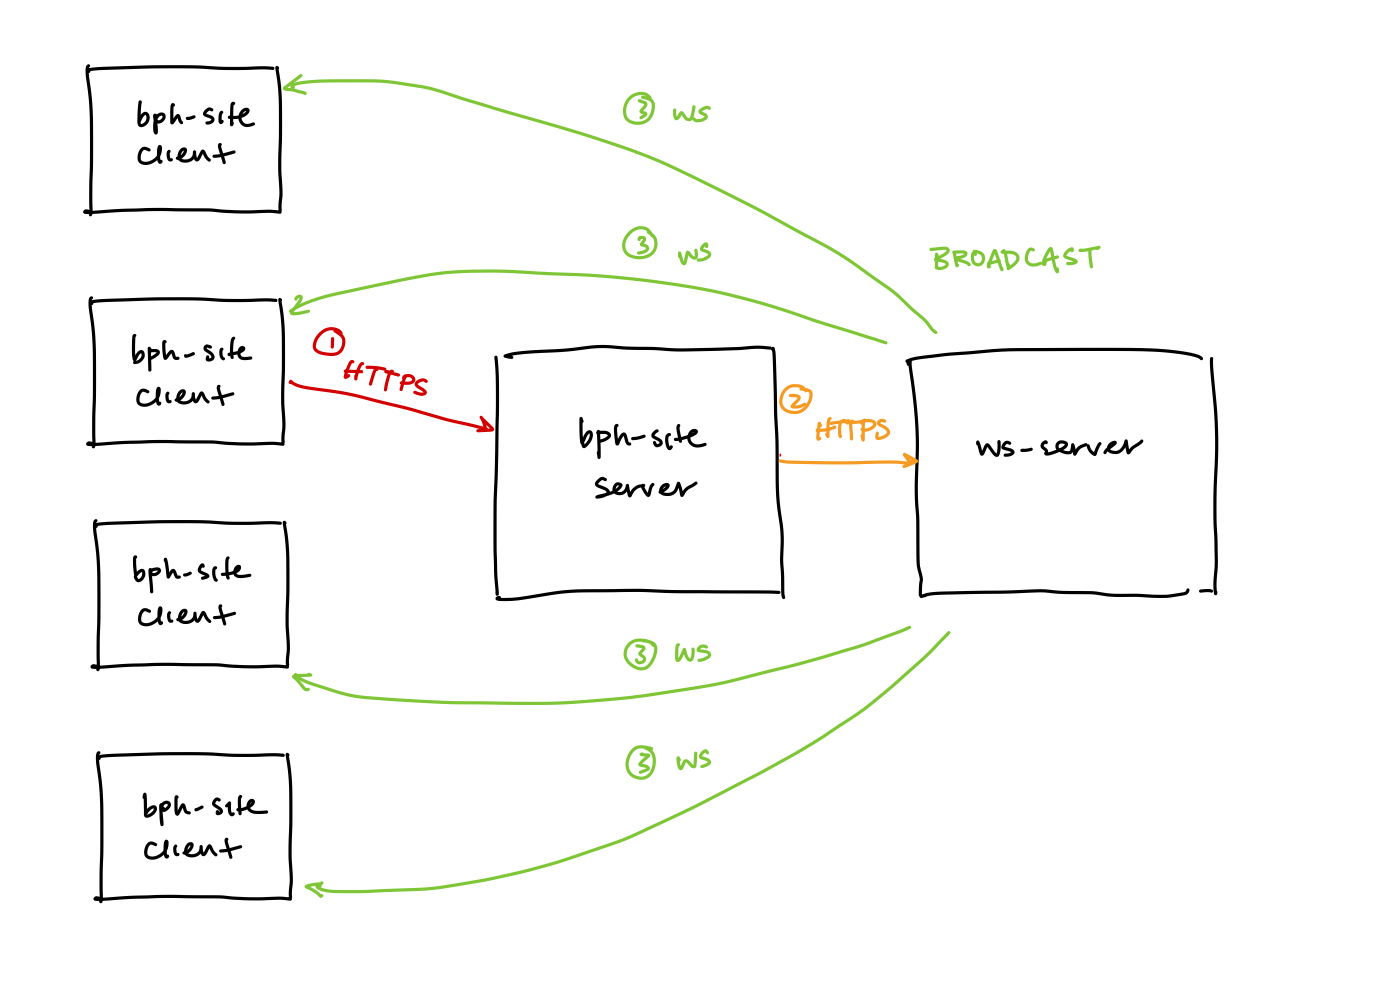 bph-site
client
③ ws
③ ws
BROADCAST
bph-site
client
① HTTPS
bph-site
server
② HTTPS
ws-server
bph-site
client
③ ws
③ ws
bph-site
client